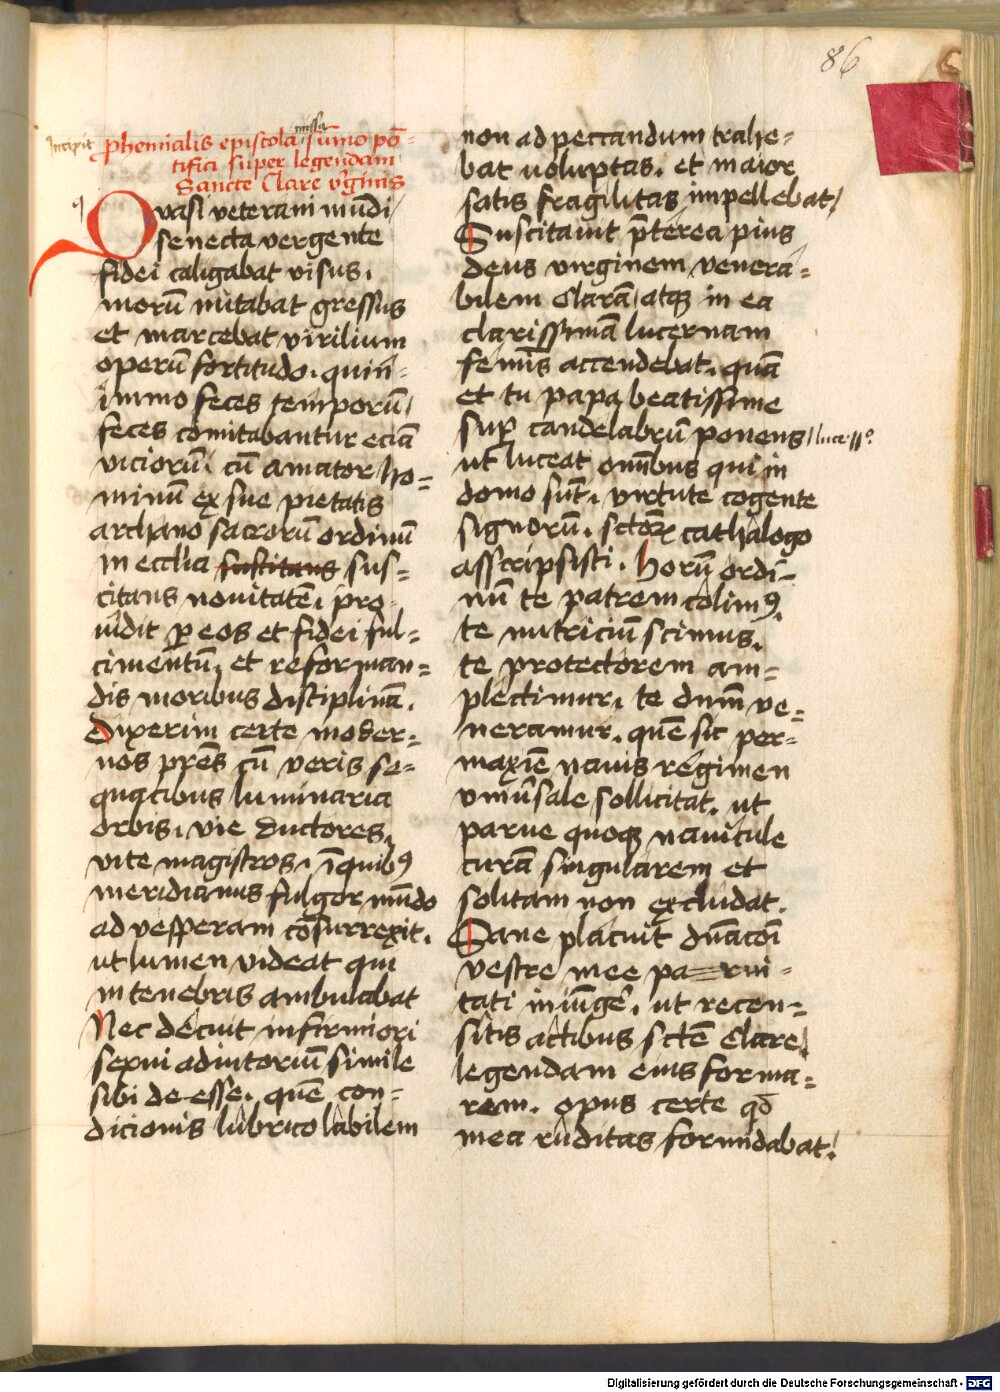 86
Incipit phemialis epistola missa sūmo pō-
tifici super legendam
Sancte Clare v̾ginis
Qvasi veterani mūdi
senecta vergente
fidei caligabat visus.
morū nutabat gressus
et marcebat virilium
operū fortitudo. quin-
immo feces temporū
feces comitabantur eciā
viciorū. cū amator ho=
minū ex sue pietatis
archano sacrorū ordinū
in ecclīa suscitans sus=
citans nouitatē. pro
uidit ꝑ eos et fidei ful=
cimentū. et reforman=
dis moribus disciplinā.
dixerim certe moder=
nos pr̄es cū veris se=
quacibus luminaria
orbis. vie ductores.
vite magistros. ī quibꝯ
meridianus fulgor mūdo
ad vesperam cōsurrexit.
ut lumen videat qui
in tenebris ambulabat
Nec decuit infirmiori
sexui adiutoriū simile
sibi de esse. quē con=
dicionis lubrico labilem
non ad peccandum trahe=
bat uoluptas. et maior
satis fragilitas impellebat
Suscitauit p̄terea pius
deus virginem venera=
bilem Clarā atqꝫ in ea
clarissimā lucernam
femīs accendebat. quā
et tu papa beatissime
sup̱ candelabrū ponens luce 11º.
ut luceat omībus qui in
domo sūt. virtute cogente
signorū. sctōꝝ cathalogo
asscripsisti. horū ordi-
nū te patrem colimꝯ.
te nutriciū scimus.
te protectorem am=
plectimur. te dn̄m ve=
neramur. quē sic per=
maxīe nauis regimen
vniūsale sollicitat. ut
parue quoqꝫ nauicule
curā singularem et
solitam non excludat.
Sane placuit dn̄acōi
vestre mee pa=rui=
tati iniūge͛. ut recen=
sitis actibus sctē Clare
legendam eius forma=
rem. opus certe qd̄
mea ruditas formidabat.
Digitalisierung gefördert durch die Deutsche Forschungsgemeinschaft - DFG